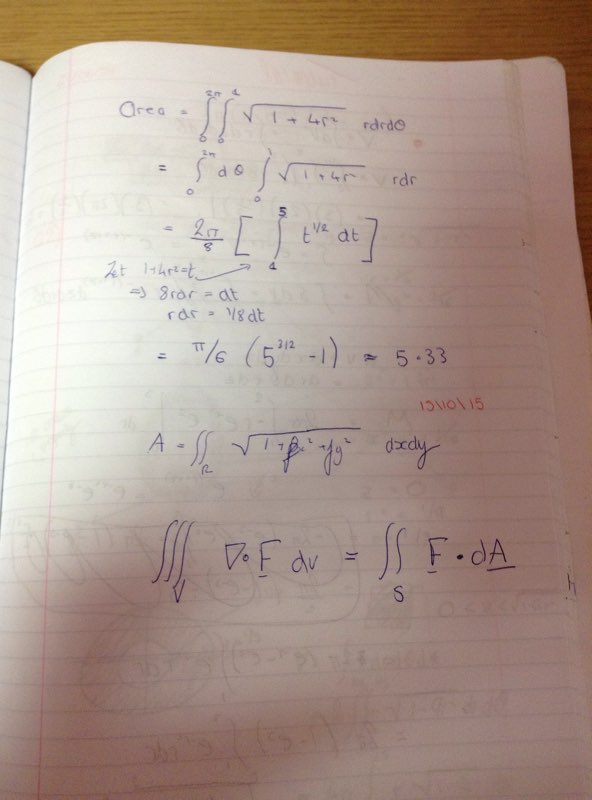 Area = ∫₀^{2π} ∫₀^{1} √(1 + 4r²) rdrdθ
= ∫₀^{2π} dθ ∫₀^{1} √(1 + 4r) rdr
= 2π/8 [ ∫₁^{5} t^{1/2} dt ]
Let 1+4r²=t
⇒ 8rdr = dt
rdr = 1/8dt
= π/6 (5^{3/2} - 1) ≈ 5.33
19\10\15
A = ∬_R √(1 + fx² + fy²) dxdy
∭_V ∇·F dv = ∬_S F · dA